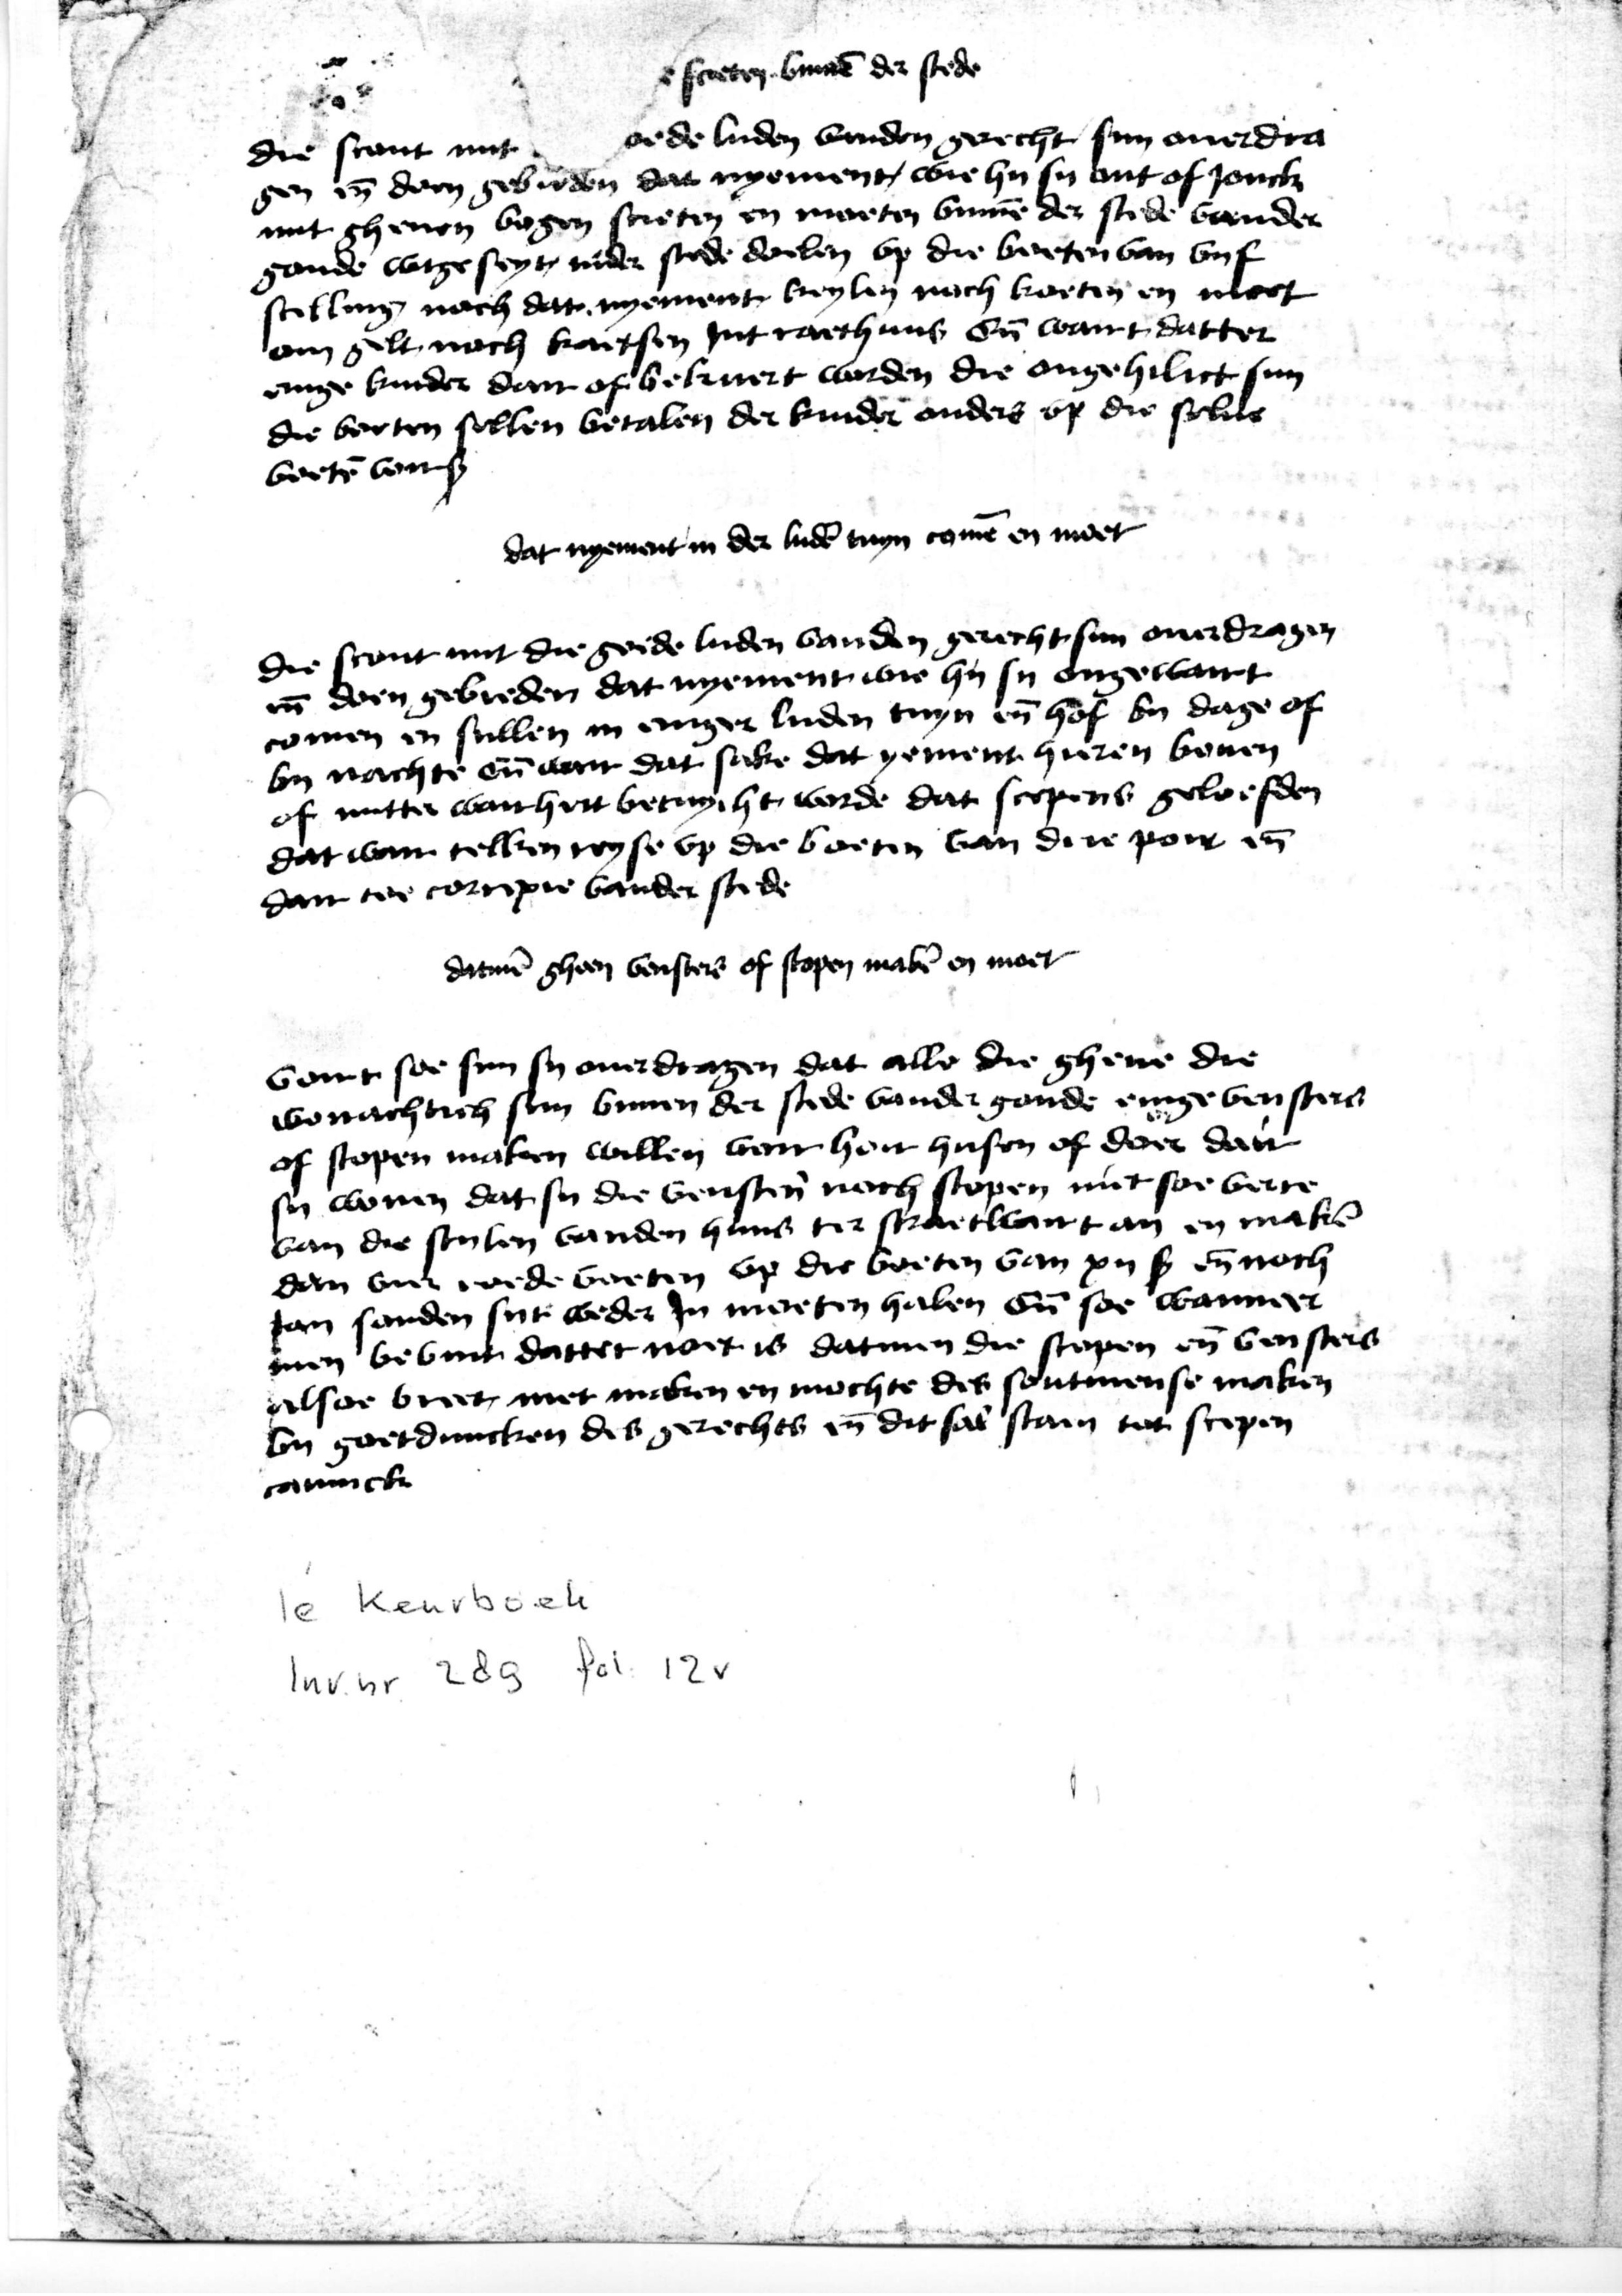 e scieten binnē der stede
die scout mit oede luden vanden gerecht sijn ouerdra
gen eñ doen gebieden dat nyement wie hij sij out of jonck
mit ghenen bogen scieten en moeten binnē der stede vander
goude wtgeseyt inder stede doelen vp die boeten van vijf
scelling noch dat nyement keylen noch koeten en moet
om gelt noch kaetsen jnt raethuus Eñ wairt datter
enige kinder dair of bekuert worden die ongehilict sijn
die boeten sellen betalen der kinder ouders vp die selue
boetē voirß
dat nyement in der ludē tuyn comē en moet
die scout mit die goede luden vanden gerecht sijn ouerdragen
eñ doen gebieden dat nyement wie hij sij ongewairt
comen en sullen in eniger luden tuyn eñ hof bij dage of
bij nachte Eñ wair dat sake dat yement hieren bouen
of mitter wairheit betuycht worde dat scepens geloefden
dat wair telken reyse vp die boeten van drie pont eñ
dair toe correxie vander stede
datmē gheen vensters of stopen makē en moet
Voirt soe sijn sij ouerdragen dat alle die ghene die
wonachtich sijn binnen der stede vander goude enige vensters
of stopen maken willen voir hoir husen of doer dair
sij wonen dat sij die venstern̄ noch stopen niet soe verre
van die stilen vanden huus ter straetwairt an en makē
dan vier roede voeten vp die boeten van xij ß eñ noch
tan souden sijt weder jn moeten halen Eñ soe wanneer
men bevint dattet noet is datmen die stopen eñ vensters
alsoe breet niet maken en mochte des soutmense maken
bij goetduncken des gerechts eñ dit sal staen tot scepen
tanunck
1e Keurboek
Inv.nr. 289 fol. 12v